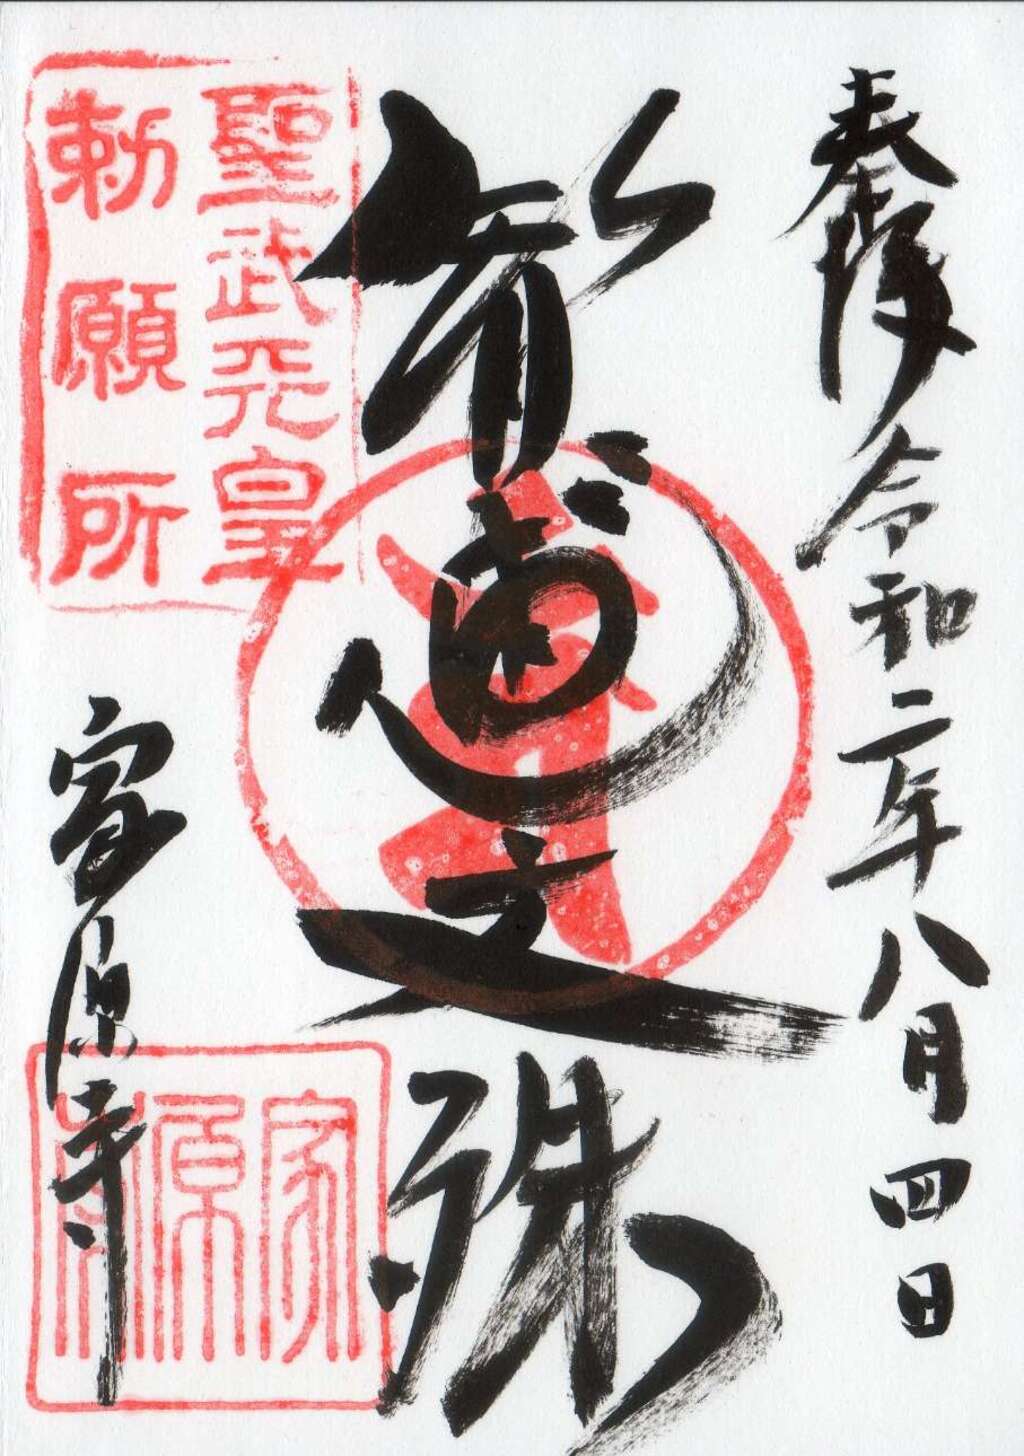 奉拝 令和二年八月四日
智恵文殊
家原寺
聖武天皇
勅願所
家原寺